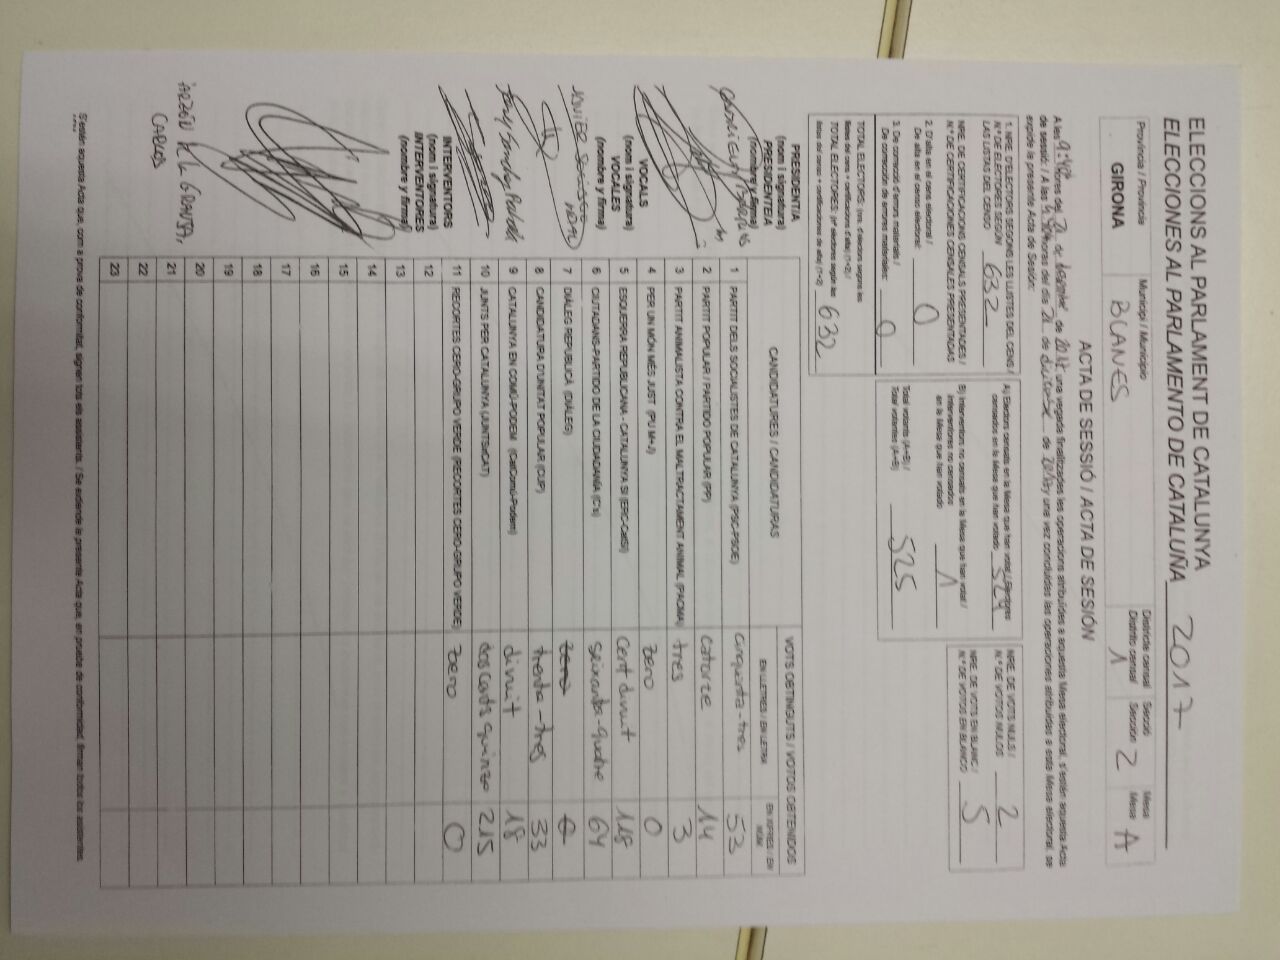 ELECCIONS AL PARLAMENT DE CATALUNYA
ELECCIONES AL PARLAMENTO DE CATALUÑA 2017
Província / Provincia
GIRONA
Municipi / Municipio
BLANES
Districte censal
Distrito censal
1
Secció
Sección
2
Mesa
Mesa
A
ACTA DE SESSIÓ / ACTA DE SESIÓN
una vegada finalitzades les operacions atribuïdes a aquesta Mesa electoral, s'estén aquesta Acta
de sessió. / A las horas del día 21 de de una vez concluidas las operaciones atribuidas a esta Mesa electoral, se
expide la presente Acta de Sesión:
1. NRE. D'ELECTORS SEGONS LES LLISTES DEL CENS /
N.º DE ELECTORES SEGÚN
LAS LISTAS DEL CENSO 632
NRE. DE CERTIFICACIONS CENSALS PRESENTADES /
N.º DE CERTIFICACIONES CENSALES PRESENTADAS
2. D'alta en el cens electoral /
De alta en el censo electoral: 0
3. De correcció d'errors materials /
De corrección de errores materiales: 0
TOTAL ELECTORS: (nre. d'electors segons les
llistes del cens + certificacions d'alta) (1+2) /
TOTAL ELECTORES: (nº electores según las
listas del censo + certificaciones de alta) (1+2) 632
A) Electors censats en la Mesa que han votat / Electores
censados en la Mesa que han votado 524
B) Interventors no censats en la Mesa que han votat /
Interventores no censados
en la Mesa que han votado 1
Total votants (A+B) /
Total votantes (A+B) 525
NRE. DE VOTS NULS /
N.º DE VOTOS NULOS 2
NRE. DE VOTS EN BLANC /
N.º DE VOTOS EN BLANCO 5
PRESIDÈNCIA
(nom i signatura)
PRESIDENTE/A
(nombre y firma)
VOCALS
(nom i signatura)
VOCALES
(nombre y firma)
INTERVENTORS
(nom i signatura)
INTERVENTORES
(nombre y firma)
CARLOS
CANDIDATURES / CANDIDATURAS
VOTS OBTINGUTS / VOTOS OBTENIDOS
EN LLETRES / EN LETRA
EN XIFRES / EN NÚM.
1 PARTIT DELS SOCIALISTES DE CATALUNYA (PSC-PSOE) cinquanta-tres 53
2 PARTIT POPULAR / PARTIDO POPULAR (PP) catorze 14
3 PARTIT ANIMALISTA CONTRA EL MALTRACTAMENT ANIMAL (PACMA) tres 3
4 PER UN MÓN MÉS JUST (PUM+J) zero 0
5 ESQUERRA REPUBLICANA - CATALUNYA SÍ (ERC-CatSí) cent divuit 118
6 CIUTADANS-PARTIDO DE LA CIUDADANÍA (C's) seixanta-quatre 64
7 DIÀLEG REPUBLICÀ (DIÀLEG)
8 CANDIDATURA D'UNITAT POPULAR (CUP) trenta-tres 33
9 CATALUNYA EN COMÚ-PODEM (CatComú-Podem) divuit 18
10 JUNTS PER CATALUNYA (JUNTSxCAT) dos cents quinze 215
11 RECORTES CERO-GRUPO VERDE (RECORTES CERO-GRUPO VERDE) zero 0
12
13
14
15
16
17
18
19
20
21
22
23
S'estén aquesta Acta que, com a prova de conformitat, signen tots els assistents. / Se extiende la presente Acta que, en prueba de conformidad, firman todos los asistentes.